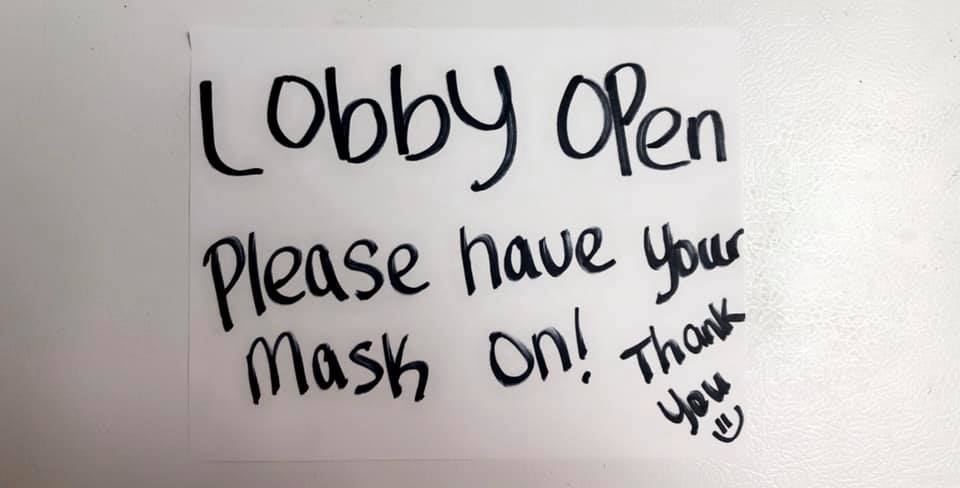 Lobby Open
Please have your
Mask on!
Thank
you